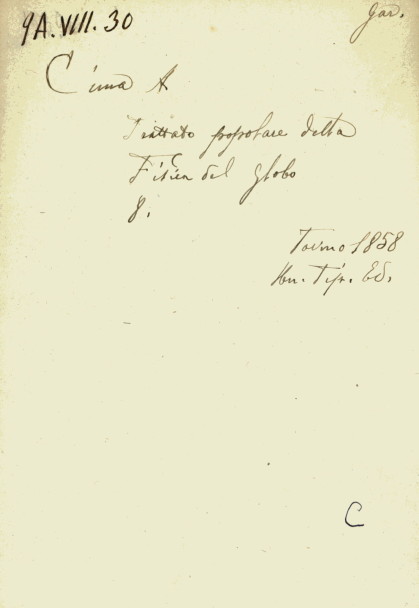 9A.VIII.30
Gar.
Cima A
Trattato popolare della
Fisica del globo
8.
Torino 1858
Un. Tip. Ed.
C